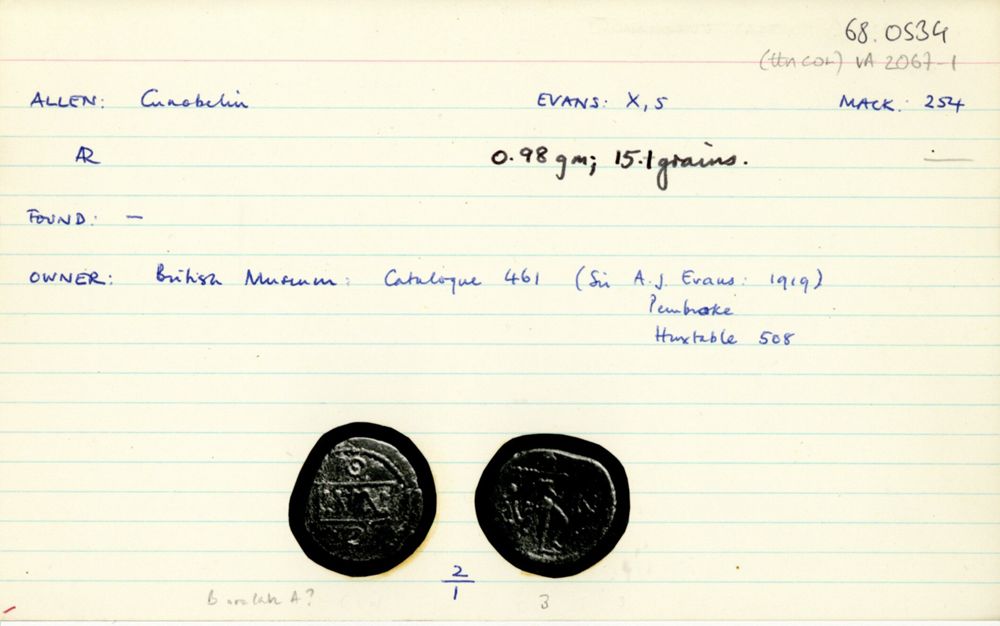 68.0534
(Uncol) VA 2067-1
ALLEN: Cunobelin EVANS: X, 5 MACK: 254
AR 0.98 gm; 15.1 grains. —
FOUND: —
OWNER: British Museum: Catalogue 461 (Sir A.J. Evans: 1919)
Pembroke
Huxtable 508
2
1
B A?
3